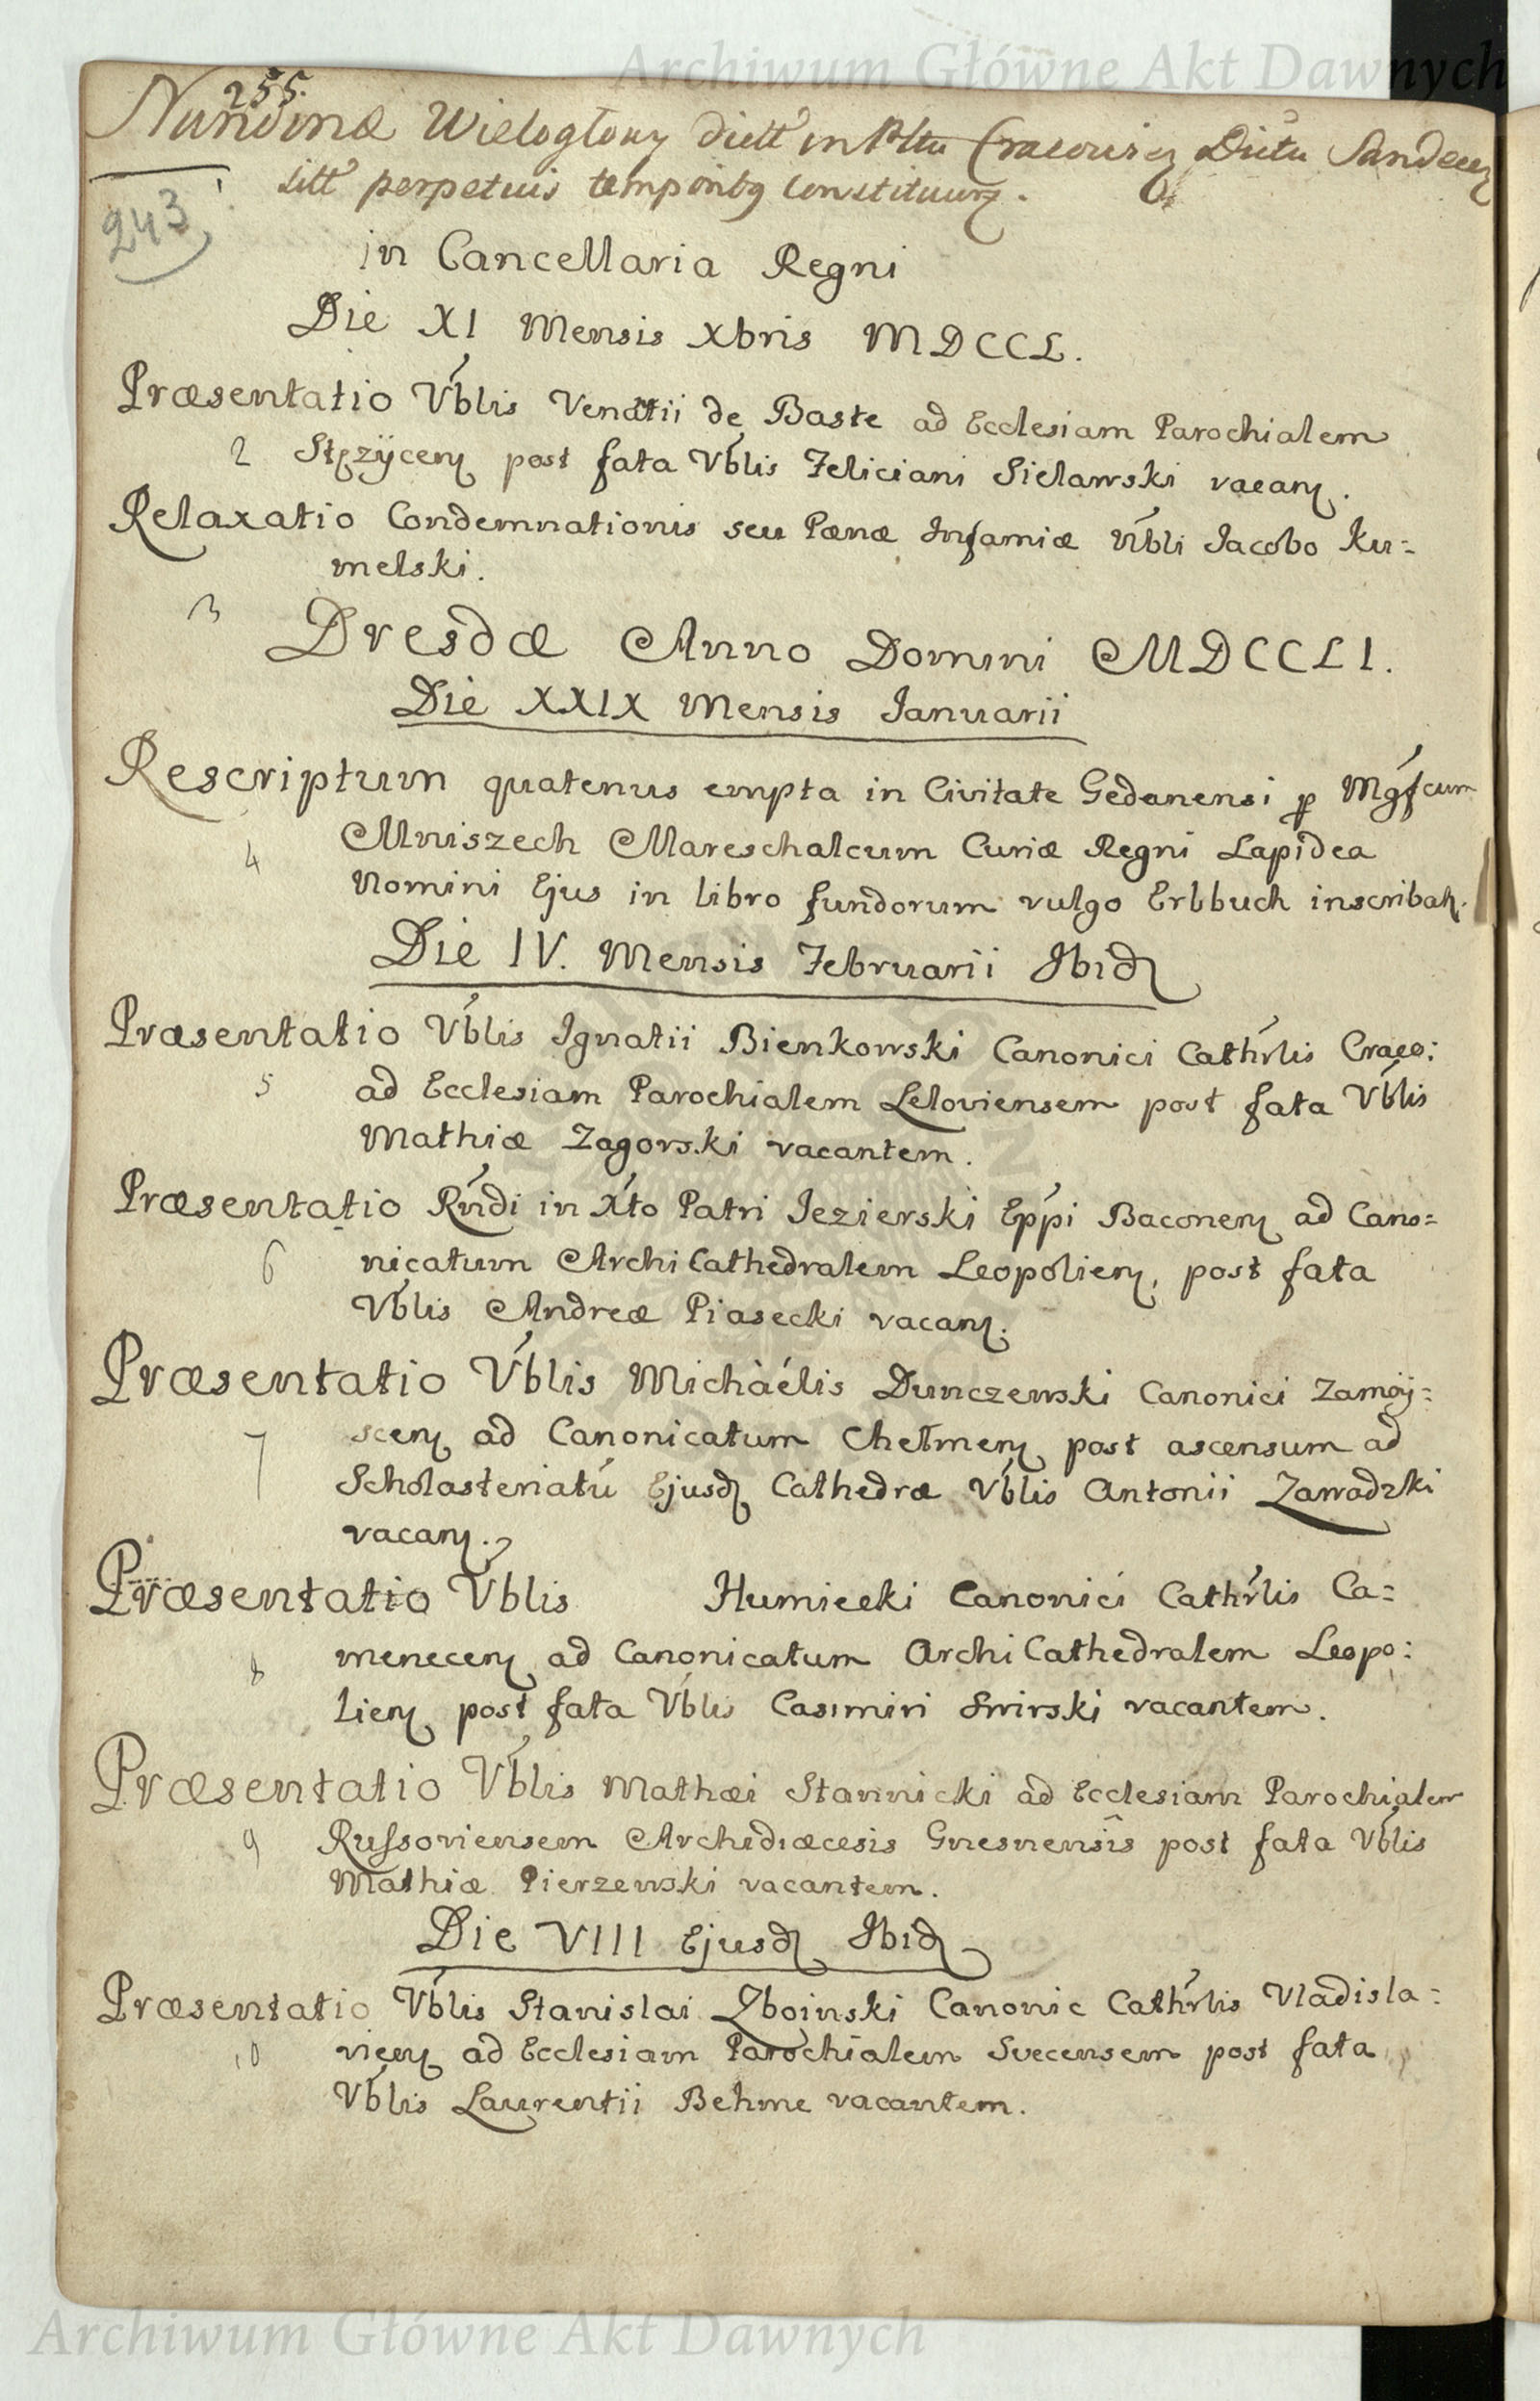 Archiwum Główne Akt Dawnych
255.
Nundinæ Wielogłowy dictt in Pltu Cracovien Distu Sandecen
243
1 sitt perpetuis temporibq constituunt.
in Cancellaria Regni
Die XI Mensis Xbris MDCCL.
Præsentatio Vblis Venatii de Baste ad Ecclesiam Parochialem
2 Stęzÿcen post fata Vblis Feliciani Sielawski vacan.
Relaxatio Condemnationis seu Pænæ Infamiæ Nbli Jacobo Ku=
melski.
3
Dresdæ Anno Domini MDCCLI.
Die XXIX Mensis Januarii
Rescriptum quatenus empta in Civitate Gedanensi p Mgfcum
4 Mniszech Mareschalcum Curiæ Regni Lapidea
Nomini Ejus in libro fundorum vulgo Erbbuch inscribat.
Die IV. Mensis Februarii Ibid
Præsentatio Vblis Ignatii Bienkowski Canonici Cathrlis Craco:
5 ad Ecclesiam Parochialem Leloviensem post fata Vblis
Mathiæ Zagorski vacantem.
Præsentatio Rndi in Xto Patri Jezierski Eppi Baconen ad Cano=
6 nicatum Archi Cathedralem Leopolien, post fata
Vblis Andreæ Piasecki vacan.
Præsentatio Vblis Michaélis Dunczewski Canonici Zamoÿ=
7 scen ad Canonicatum Chełmen post ascensum ad
Scholasteriatú Ejusd Cathedræ Vblis Antonii Zawadzki
vacan.
Præsentatio Vblis Humiecki Canonici Cathrlis Ca=
8 menecen ad Canonicatum Archi Cathedralem Leopo:
lien post fata Vblis Casimiri Swirski vacantem.
Præsentatio Vblis Mathæi Stawnicki ad Ecclesiam Parochialem
9 Russoviensem Archidiæcesis Gnesnensis post fata Vblis
Mathiæ Pierzewski vacantem.
Die VIII Ejusd Ibid
Præsentatio Vblis Stanislai Zboinski Canonic Cathrlis Vladisla=
10 vien ad Ecclesiam Parochialem Svecensem post fata
Vblis Laurentii Behme vacantem.
Archiwum Główne Akt Dawnych